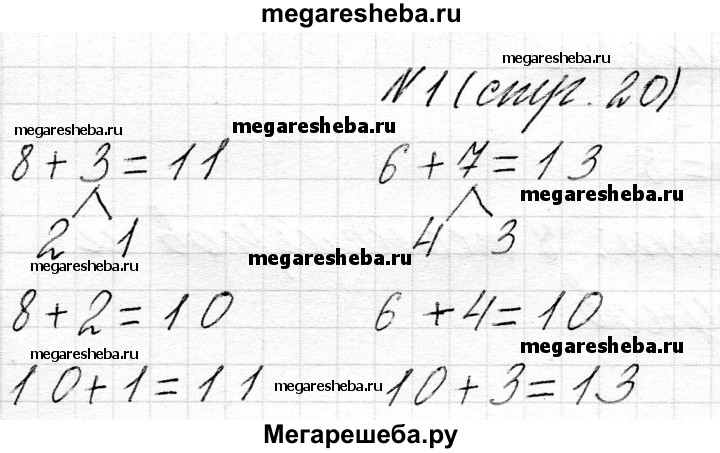 megaresheba.ru
megaresheba.ru
№1 (стр. 20)
megaresheba.ru megaresheba.ru
8+3=11 6+7=13
megaresheba.ru
2 1 4 3
megaresheba.ru megaresheba.ru
8+2=10 6+4=10
megaresheba.ru megaresheba.ru
10+1=11 megaresheba.ru 10+3=13
megaresheba.ru
Мегарешеба.ру